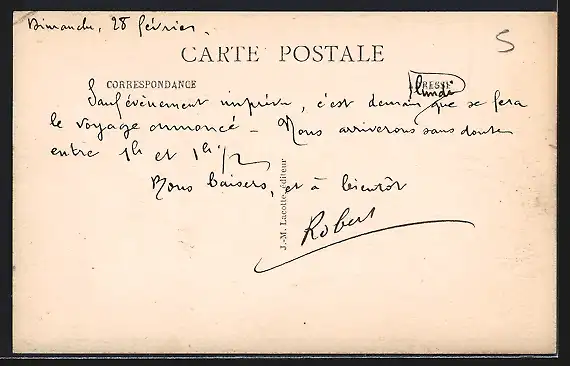 Dimanche, 28 février.
5
CARTE POSTALE
CORRESPONDANCE
ADRESSE
lundi
Sauf évènement imprévu, c'est demain que se fera
le voyage annoncé - Nous arriverons sans doute
entre 1h et 1h 1/2
Bons baisers, et à bientôt
Robert
J.-M. Lacotte, éditeur